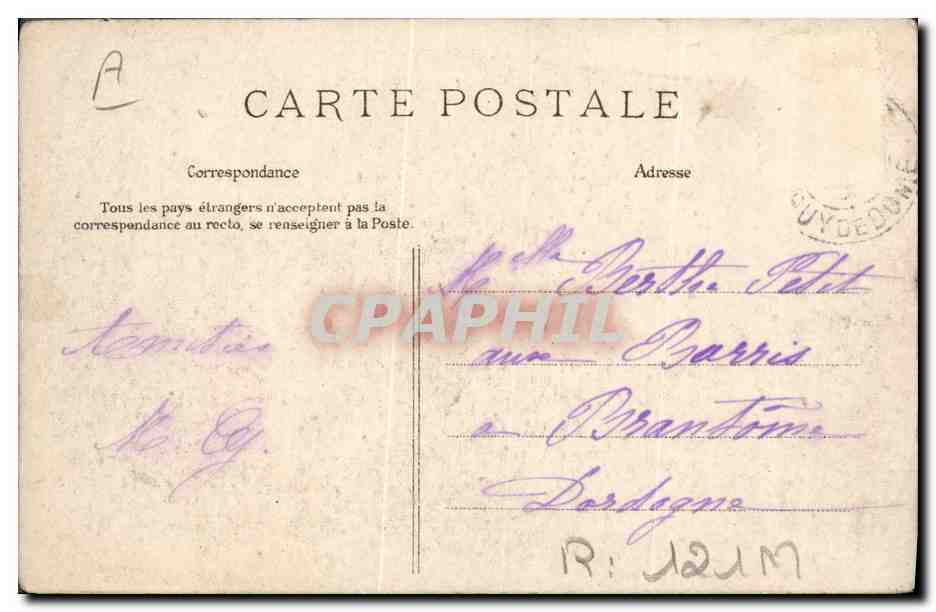 A
CARTE POSTALE
Correspondance
Tous les pays étrangers n'acceptent pas la
correspondance au recto, se renseigner à la Poste.
Adresse
PUY DE DOME
Amitiés
M. Cg.
Melle Berthe Petit
aux Barris
a Brantôme
Dordogne
CPAPHIL
R: 121M